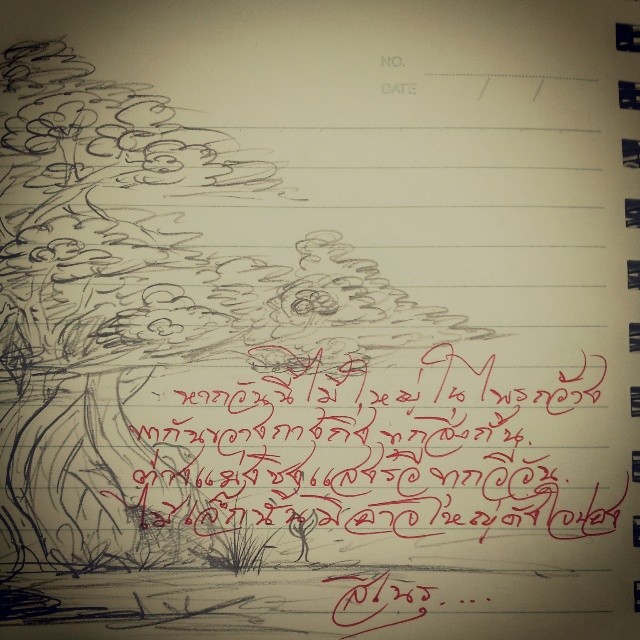 NO.
DATE / /
หากวันนี้ไม้ใหญ่ในไพรกว้าง
พากันขวางกางกิ่งทุกสิ่งกั้น.
ต่างแย่งชิงแสงรวีทุกวี่วัน.
ไม้เล็กนั้นมิอาจใหญ่ดังใจปอง
สิเนรุ....